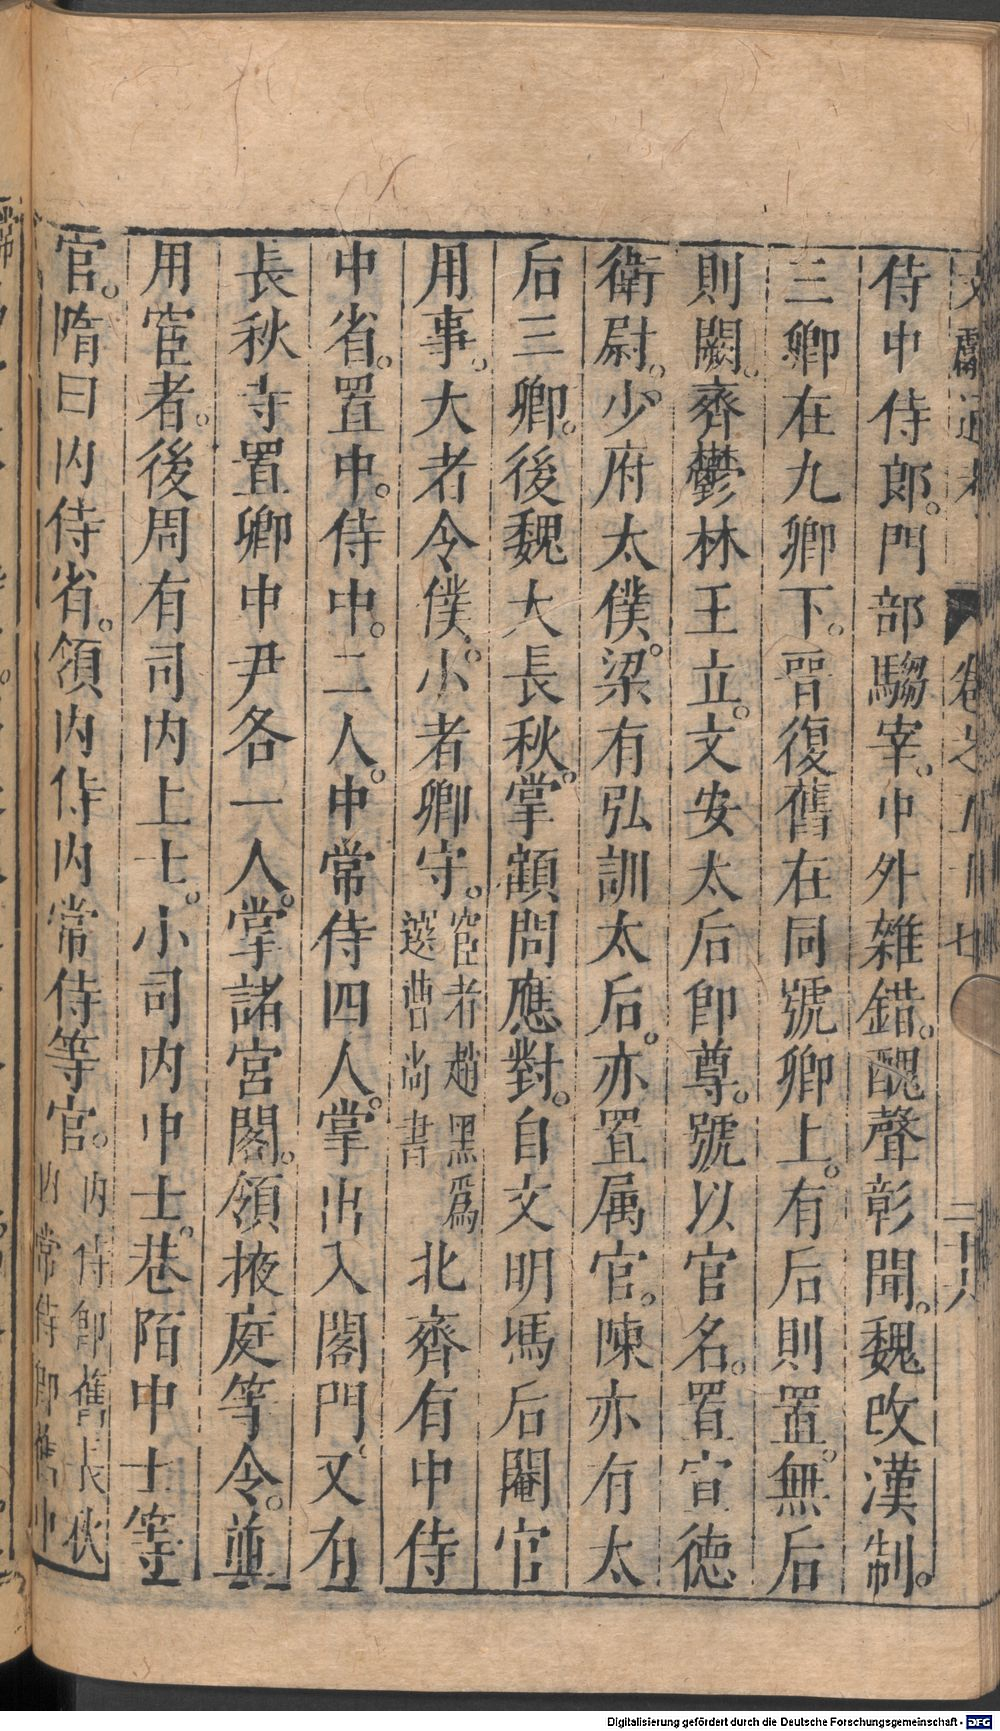 文獻通考 卷之五十七 二十八
侍中侍郎。門部騶宰。中外雜錯。醜聲彰聞。魏改漢制。
三卿在九卿下。晉復舊在同號卿上。有后則置。無后
則闕。齊鬱林王立。文安太后卽尊。號以官名。置宣德
衛尉。少府太僕。梁有弘訓太后。亦置属官。陳亦有太
后三卿。後魏大長秋。掌顧問應對。自文明馮后閹官
用事。大者令僕。小者卿守。宦者趙黑爲選曹尚書北齊有中侍
中省。置中。侍中。二人。中常侍四人。掌出入閤門。又有
長秋寺置卿中尹各一人。掌諸宮閣。領掖庭等令。並
用宦者。後周有司內上士。小司內中士。巷陌中士等
官。隋曰內侍省。領內侍內常侍等官。內侍卽舊長秋內常侍卽舊中
Digitalisierung gefördert durch die Deutsche Forschungsgemeinschaft - DFG